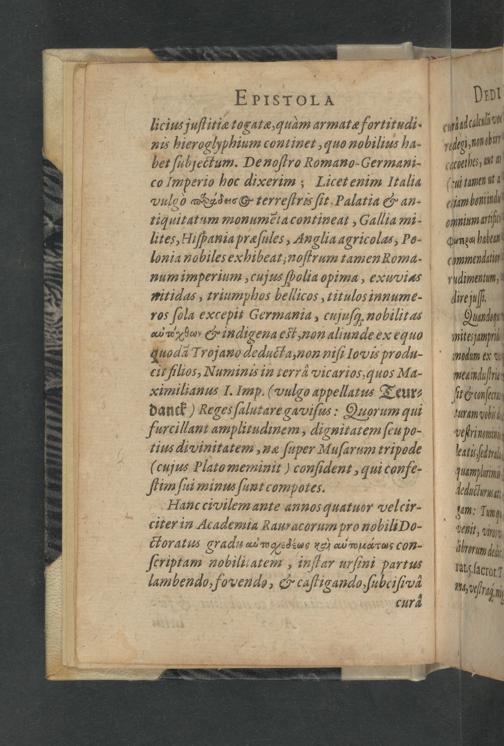 EPISTOLA
licius justitiæ togatæ, quàm armatæ fortitudi-
nis hieroglyphium continet, quo nobilius ha-
bet subjectum. De nostro Romano-Germani-
co Imperio hoc dixerim; Licet enim Italia
vulgò terrestris sit, Palatia & an-
tiquitatum monumēta contineat, Gallia mi-
lites, Hispania præsules, Anglia agricolas, Po-
lonia nobiles exhibeat; nostrum tamen Roma-
num imperium, cujus spolia opima, exuvias
nitidas, triumphos bellicos, titulos innume-
ros sola excepit Germania, cujusq; nobilitas
αὐτόχθων & indigena est, non aliunde ex equo
quodā Trojano deducta, non nisi Iovis produ-
cit filios, Numinis in terrâ vicarios, quos Ma-
ximilianus I. Imp. (vulgo appellatus Teur-
danck) Reges salutare gavisus: Quorum qui
furcillant amplitudinem, dignitatem seu po-
tius divinitatem, næ super Musarum tripode
(cujus Plato meminit) consident, qui confe-
stim sui minus sunt compotes.
Hanc civilem ante annos quatuor vel cir-
citer in Academia Rauracorum pro nobili Do-
ctoratus gradu con-
scriptam nobilitatem, instar ursini partus
lambendo, fovendo, & castigando, subcisivâ
curâ
DEDI
curâ ad calculū
redegi, non
cacoethes, aut
(cui tamen ut
etiam boni
omnium artific
habeat
commendation
rudimentum,
dire jussi.